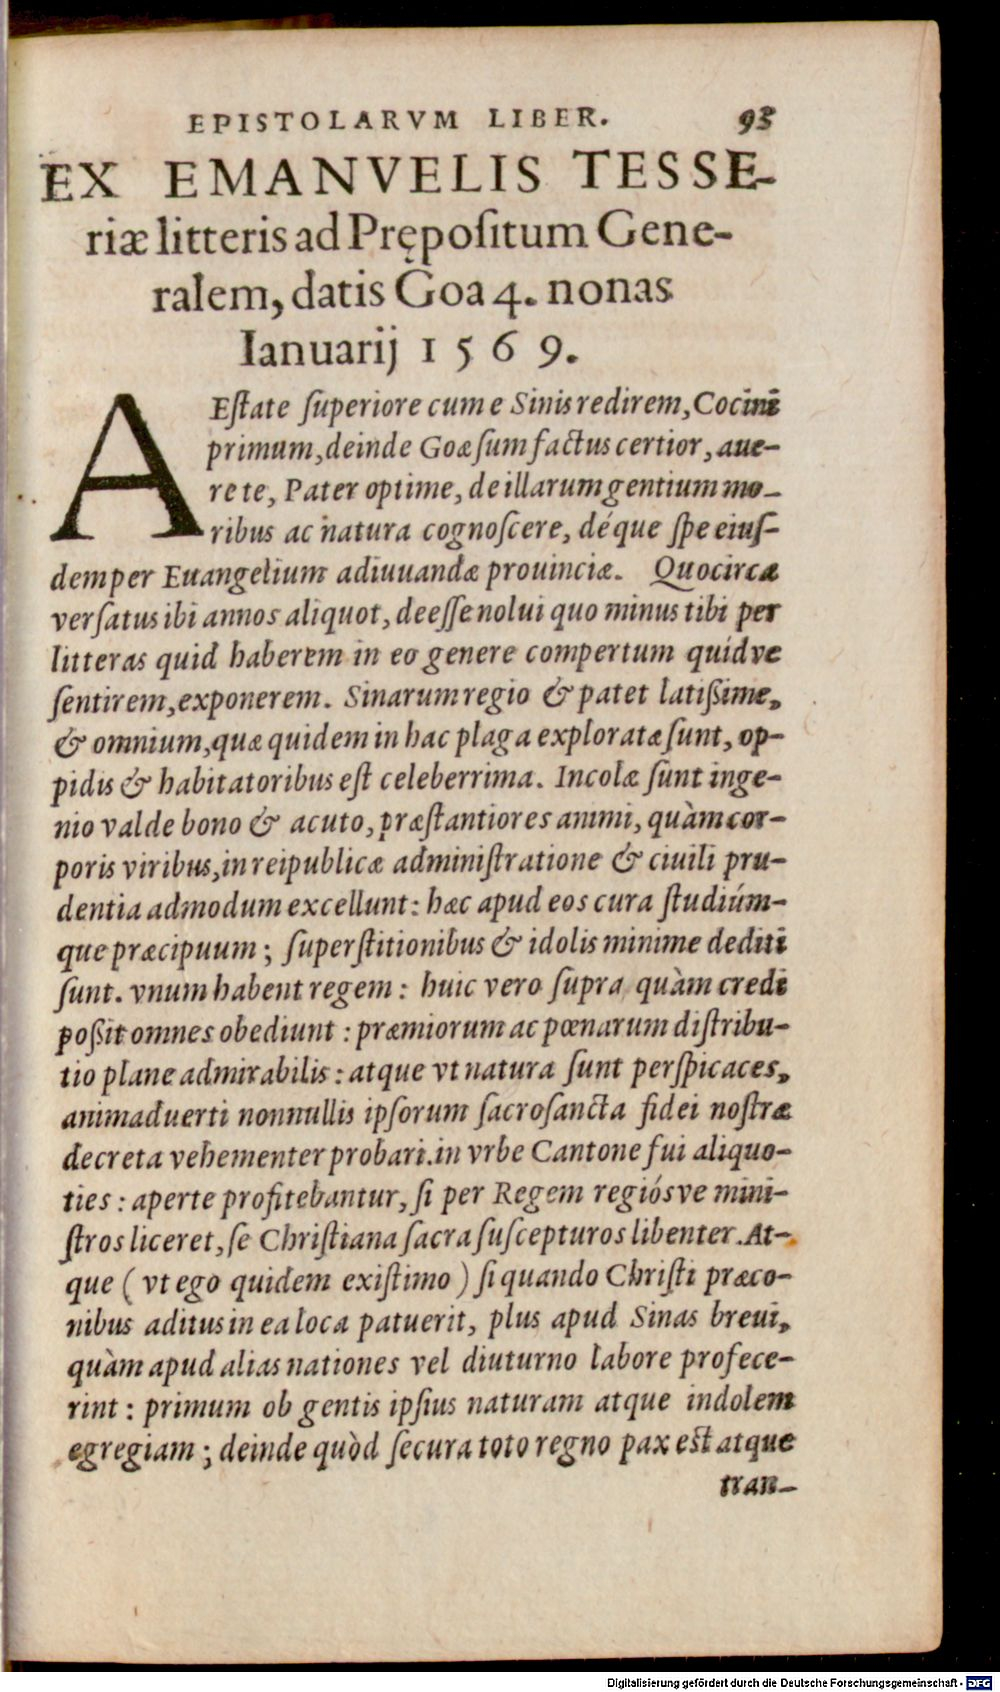 EPISTOLARVM LIBER. 93
EX EMANVELIS TESSE-
riæ litteris ad Prępoſitum Gene-
ralem, datis Goa 4. nonas
Ianuarij 1569.
AEſtate ſuperiore cum e Sinis redirem, Cocini
primum, deinde Goæ ſum factus certior, aue-
re te, Pater optime, de illarum gentium mo-
ribus ac natura cognoſcere, déque ſpe eiuſ-
dem per Euangelium adiuuandæ prouinciæ. Quocirca
verſatus ibi annos aliquot, deeſſe nolui quo minus tibi per
litteras quid haberem in eo genere compertum quidve
ſentirem, exponerem. Sinarum regio & patet latißime,
& omnium, quæ quidem in hac plaga exploratæ ſunt, op-
pidis & habitatoribus eſt celeberrima. Incolæ ſunt inge-
nio valde bono & acuto, præſtantiores animi, quàm cor-
poris viribus, in reipublicæ adminiſtratione & ciuili pru-
dentia admodum excellunt: hæc apud eos cura ſtudiúm-
que præcipuum; ſuperſtitionibus & idolis minime dediti
ſunt. vnum habent regem: huic vero ſupra quàm credi
poßit omnes obediunt: præmiorum ac pœnarum diſtribu-
tio plane admirabilis: atque vt natura ſunt perſpicaces,
animaduerti nonnullis ipſorum ſacroſancta fidei noſtræ
decreta vehementer probari. in vrbe Cantone fui aliquo-
ties: aperte profitebantur, ſi per Regem regiósve mini-
ſtros liceret, ſe Chriſtiana ſacra ſuſcepturos libenter. At-
que (vt ego quidem exiſtimo) ſi quando Chriſti præco-
nibus aditus in ea loca patuerit, plus apud Sinas breui,
quàm apud alias nationes vel diuturno labore profece-
rint: primum ob gentis ipſius naturam atque indolem
egregiam; deinde quòd ſecura toto regno pax eſt atque
tran-
Digitalisierung gefördert durch die Deutsche Forschungsgemeinschaft - DFG